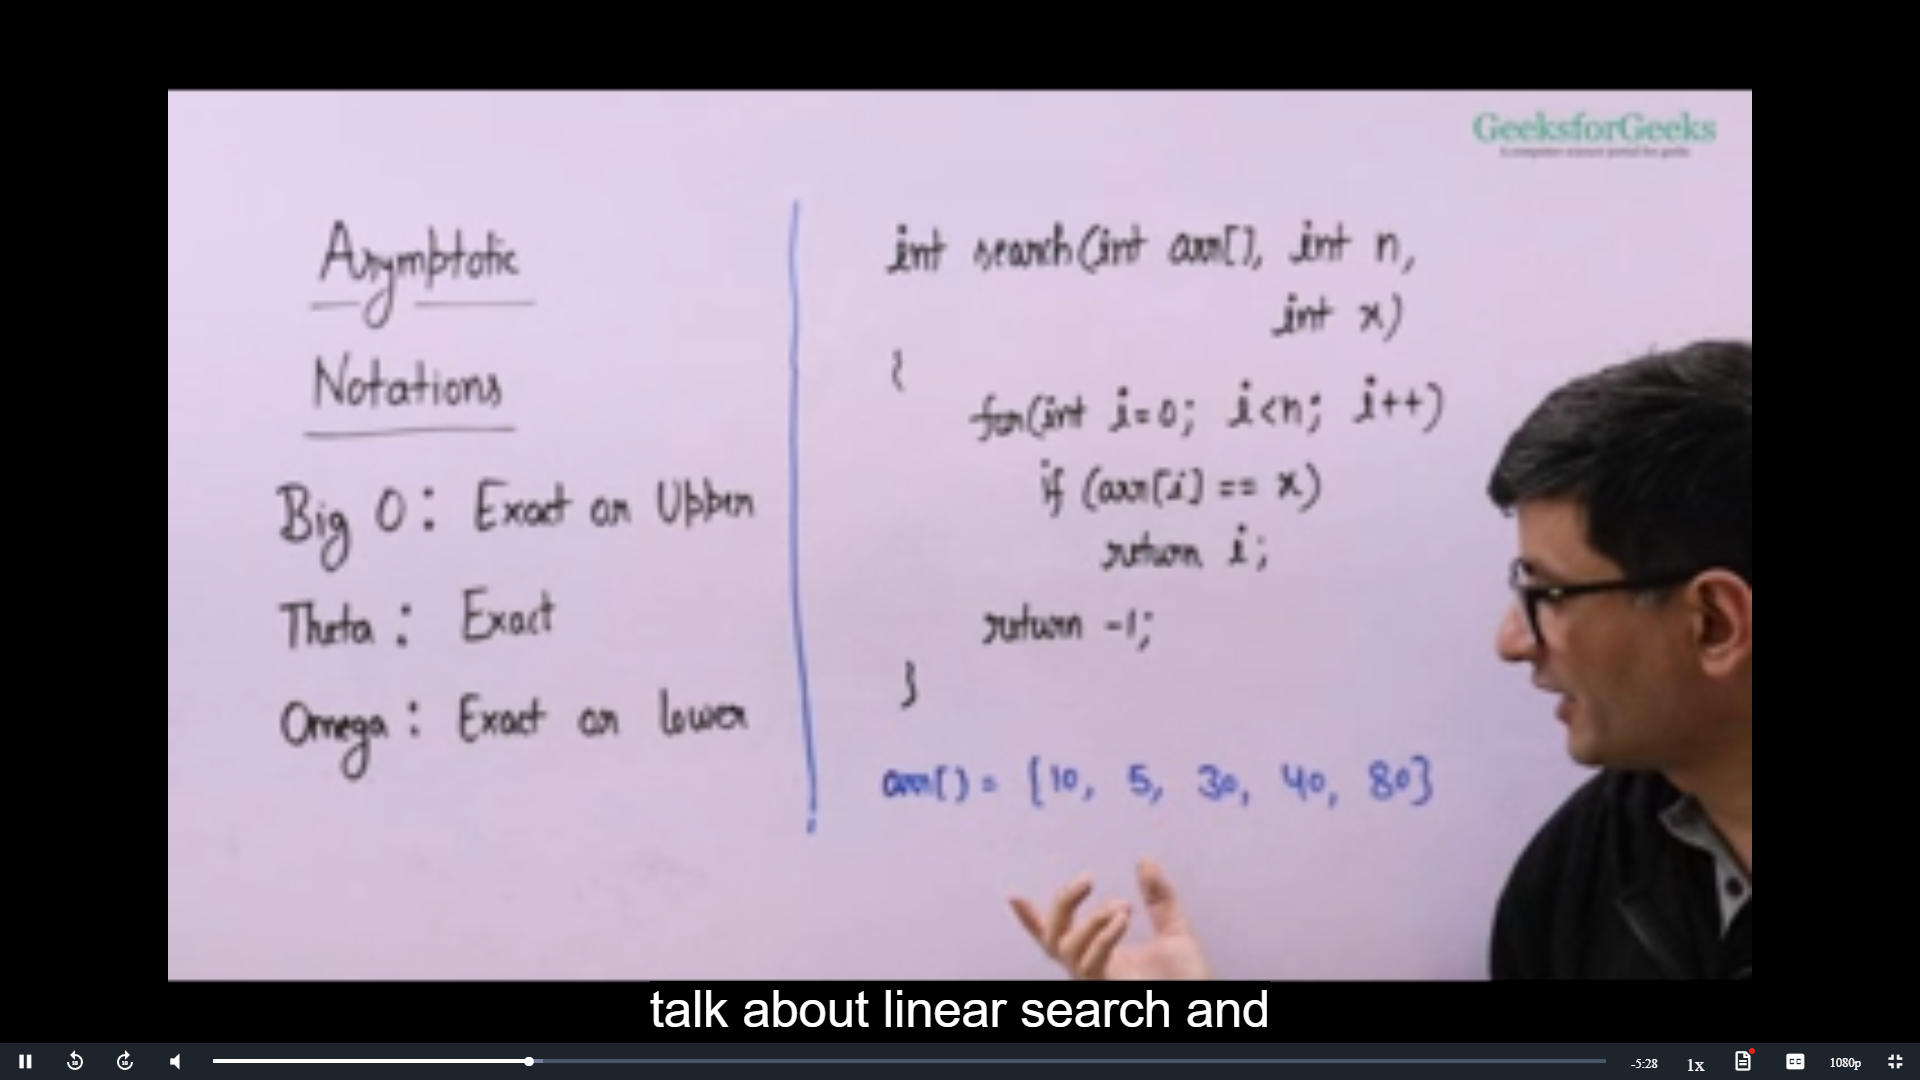 GeeksforGeeks
A computer science portal for geeks
Asymptotic
Notations
Big O : Exact or Upper
Theta : Exact
Omega : Exact or lower
int search(int arr[], int n,
int x)
{
for(int i=0; i<n; i++)
if (arr[i] == x)
return i;
return -1;
}
arr[] = {10, 5, 30, 40, 80}
talk about linear search and
10
10
-5:28
1x
CC
1080p